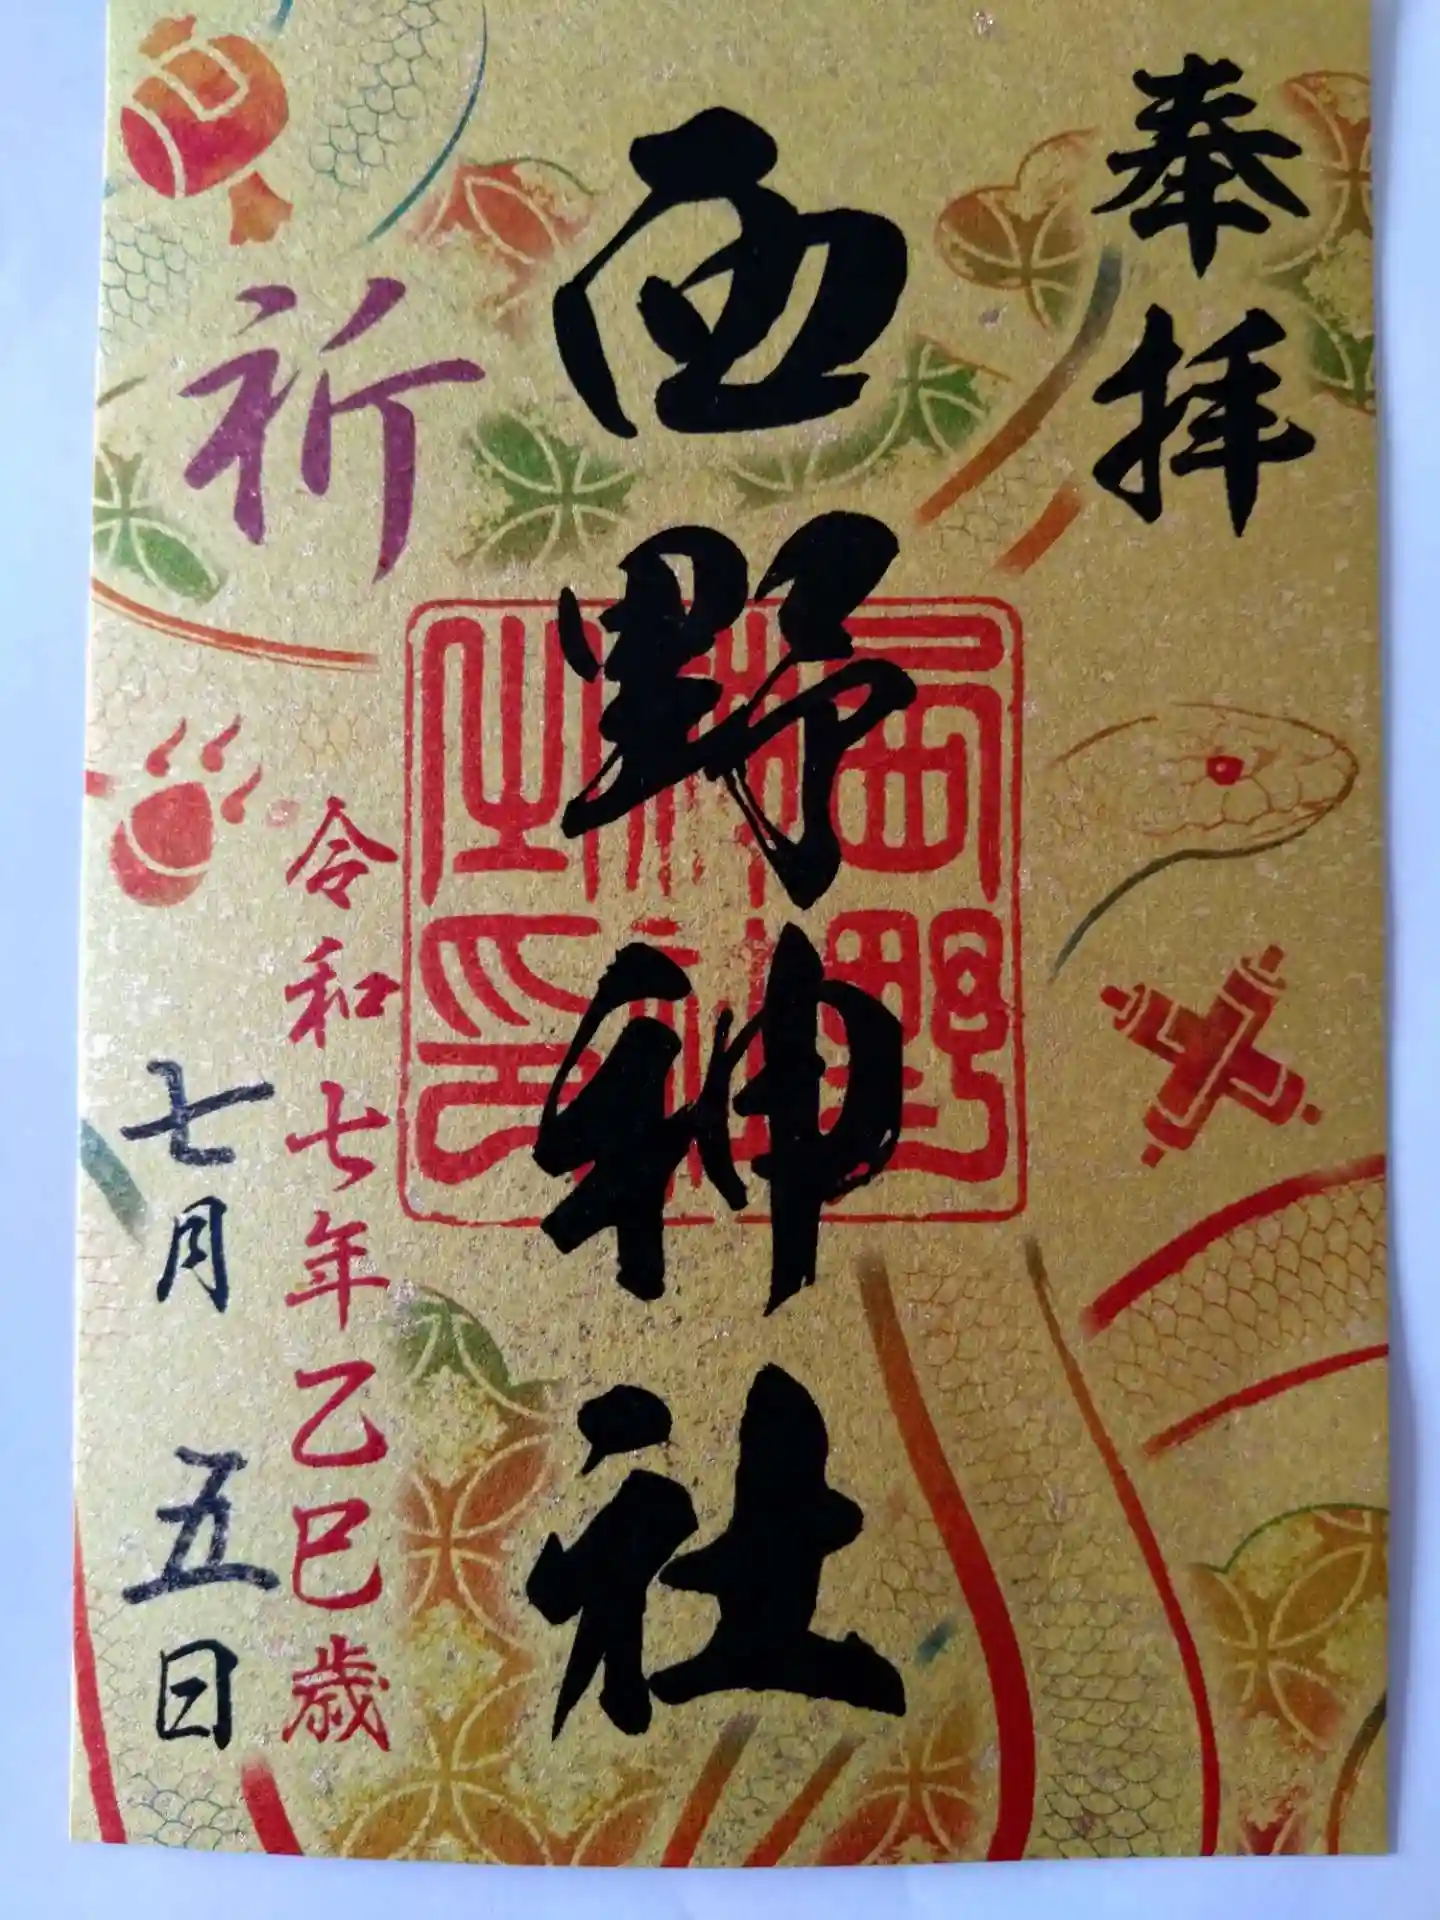 奉拝
西野神社
西野神社之印
祈
令和七年乙巳歳
七月五日